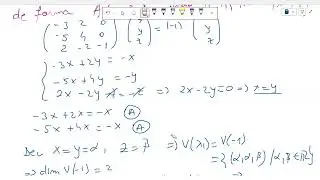 de forma
( -3 2 0 ) ( x ) = (-1) ( x )
( -5 4 0 ) ( y ) ( y )
( 2 -2 -1 ) ( z ) ( z )
{ -3x + 2y = -x
-5x + 4y = -y
2x - 2y - z = -z => 2x-2y=0 => x=y
-3x + 2x = -x (A)
-5x + 4x = -x (A)
Deci x = y = α, z = β => V(λ1) = V(-1)
= { (α, α, β) / α, β ∈ R }
=> dim V(-1) = 2